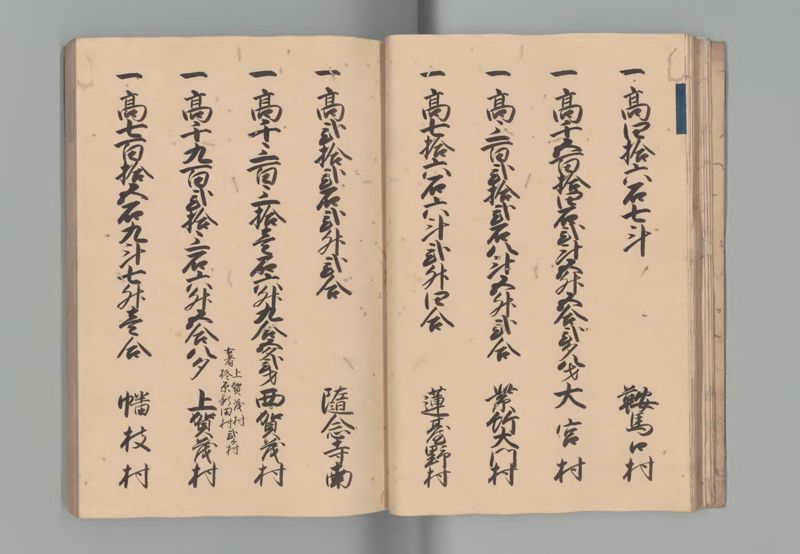 一高四拾六石七斗 鞍馬口村
一高千五百拾四石弐斗五升五合弐夕八才 大宮村
一高三百弐拾弐石八斗五升弐合 紫竹大門村
一高七拾六石六斗弐升四合 蓮台野村
一高弐拾弐石弐升弐合 随念寺南
一高千三百三拾壱石六升九合五夕弐才 西賀茂村
一高千九百弐拾三石六升五合八夕 上賀茂村
上賀茂村
村弐村
一高七百拾五石九斗七升壱合 幡枝村